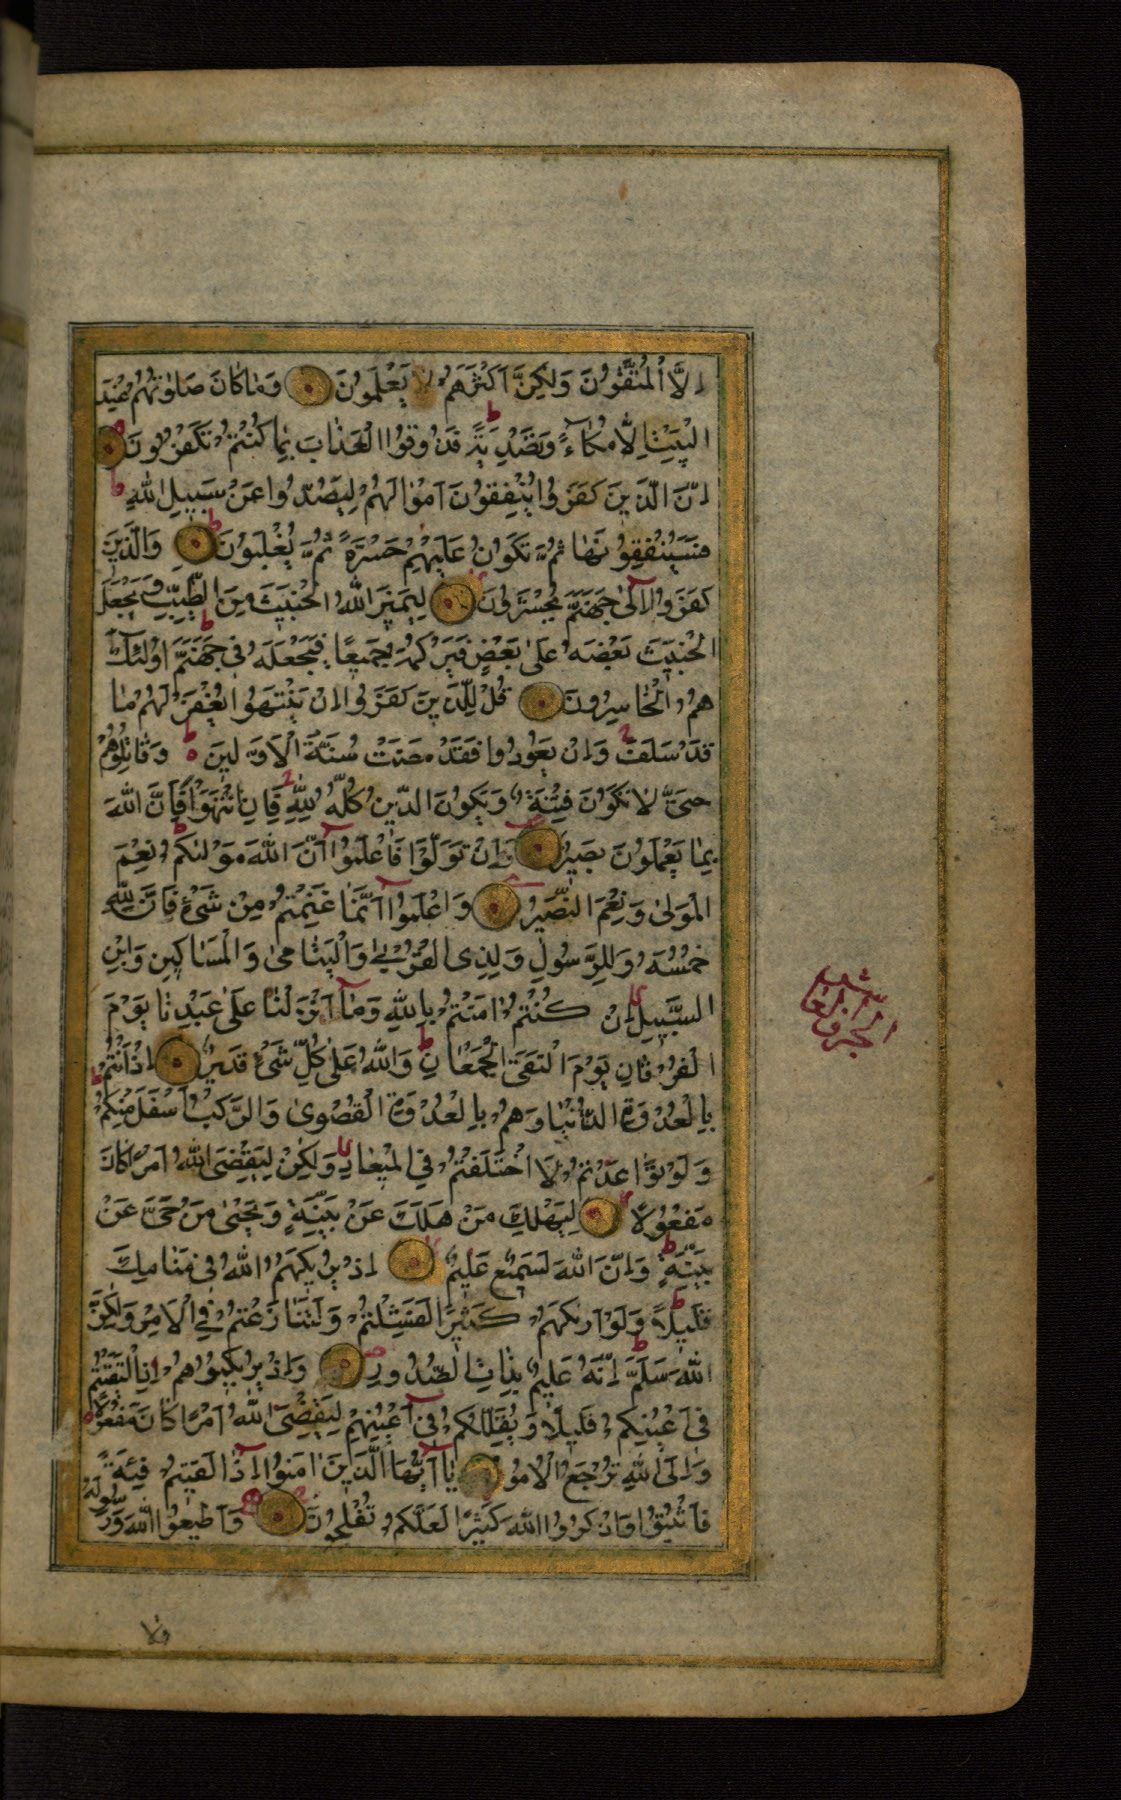 اِلَّا الْمُتَّقُونَ وَلٰكِنَّ اَكْثَرَهُمْ لَا يَعْلَمُونَ وَمَا كَانَ صَلٰوتُهُمْ عِنْدَ
الْبَيْتِ اِلَّا مُكَاۤءً وَتَصْدِيَةً فَذُوقُوا الْعَذَابَ بِمَا كُنْتُمْ تَكْفُرُونَ
اِنَّ الَّذِينَ كَفَرُوا يُنْفِقُونَ اَمْوَالَهُمْ لِيَصُدُّوا عَنْ سَبِيلِ اللّٰهِ
فَسَيُنْفِقُونَهَا ثُمَّ تَكُونُ عَلَيْهِمْ حَسْرَةً ثُمَّ يُغْلَبُونَ وَالَّذِينَ
كَفَرُوا اِلٰى جَهَنَّمَ يُحْشَرُونَ لِيَمِيزَ اللّٰهُ الْخَبِيثَ مِنَ الطَّيِّبِ وَيَجْعَلَ
الْخَبِيثَ بَعْضَهُ عَلٰى بَعْضٍ فَيَرْكُمَهُ جَمِيعًا فَيَجْعَلَهُ فِي جَهَنَّمَ اُولٰئِكَ
هُمُ الْخَاسِرُونَ قُلْ لِلَّذِينَ كَفَرُوا اِنْ يَنْتَهُوا يُغْفَرْ لَهُمْ مَا
قَدْ سَلَفَ وَاِنْ يَعُودُوا فَقَدْ مَضَتْ سُنَّةُ الْاَوَّلِينَ وَقَاتِلُوهُمْ
حَتّٰى لَا تَكُونَ فِتْنَةٌ وَيَكُونَ الدِّينُ كُلُّهُ لِلّٰهِ فَاِنِ انْتَهَوْا فَاِنَّ اللّٰهَ
بِمَا يَعْمَلُونَ بَصِيرٌ وَاِنْ تَوَلَّوْا فَاعْلَمُوا اَنَّ اللّٰهَ مَوْلٰكُمْ نِعْمَ
الْمَوْلٰى وَنِعْمَ النَّصِيرُ وَاعْلَمُوا اَنَّمَا غَنِمْتُمْ مِنْ شَيْءٍ فَاَنَّ لِلّٰهِ
خُمُسَهُ وَلِلرَّسُولِ وَلِذِي الْقُرْبٰى وَالْيَتَامٰى وَالْمَسَاكِينِ وَابْنِ
السَّبِيلِ اِنْ كُنْتُمْ اٰمَنْتُمْ بِاللّٰهِ وَمَا اَنْزَلْنَا عَلٰى عَبْدِنَا يَوْمَ
الْفُرْقَانِ يَوْمَ الْتَقَى الْجَمْعَانِ وَاللّٰهُ عَلٰى كُلِّ شَيْءٍ قَدِيرٌ اِذْ اَنْتُمْ
بِالْعُدْوَةِ الدُّنْيَا وَهُمْ بِالْعُدْوَةِ الْقُصْوٰى وَالرَّكْبُ اَسْفَلَ مِنْكُمْ
وَلَوْ تَوَاعَدْتُمْ لَاخْتَلَفْتُمْ فِي الْمِيعَادِ وَلٰكِنْ لِيَقْضِيَ اللّٰهُ اَمْرًا كَانَ
مَفْعُولًا لِيَهْلِكَ مَنْ هَلَكَ عَنْ بَيِّنَةٍ وَيَحْيٰى مَنْ حَيَّ عَنْ
بَيِّنَةٍ وَاِنَّ اللّٰهَ لَسَمِيعٌ عَلِيمٌ اِذْ يُرِيكَهُمُ اللّٰهُ فِي مَنَامِكَ
قَلِيلًا وَلَوْ اَرٰىكَهُمْ كَثِيرًا لَفَشِلْتُمْ وَلَتَنَازَعْتُمْ فِي الْاَمْرِ وَلٰكِنَّ
اللّٰهَ سَلَّمَ اِنَّهُ عَلِيمٌ بِذَاتِ الصُّدُورِ وَاِذْ يُرِيكُمُوهُمْ اِذِ الْتَقَيْتُمْ
فِي اَعْيُنِكُمْ قَلِيلًا وَيُقَلِّلُكُمْ فِي اَعْيُنِهِمْ لِيَقْضِيَ اللّٰهُ اَمْرًا كَانَ مَفْعُولًا
وَاِلَى اللّٰهِ تُرْجَعُ الْاُمُورُ يَا اَيُّهَا الَّذِينَ اٰمَنُوا اِذَا لَقِيتُمْ فِئَةً
فَاثْبُتُوا وَاذْكُرُوا اللّٰهَ كَثِيرًا لَعَلَّكُمْ تُفْلِحُونَ وَاَطِيعُوا اللّٰهَ وَرَسُولَهُ
الجزؤ العاشر
ولا